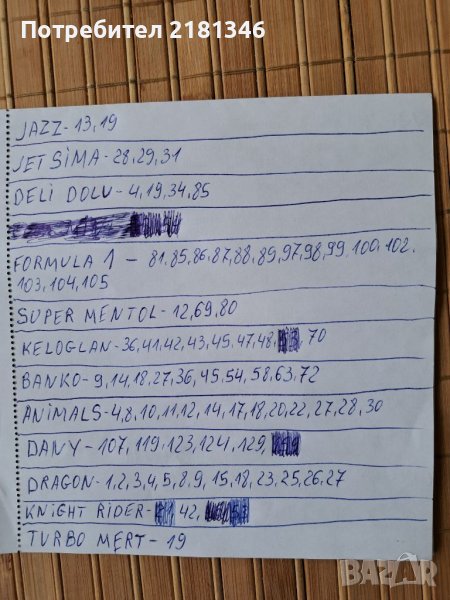 Потребител 2181346
JAZZ-13,19
JET SİMA-28,29,31
DELİ DOLU-4,19,34,85
FORMULA 1 - 81,85,86,87,88,89,97,98,99,100,102.
103,104,105
SUPER MENTOL-12,69,80
KELOGLAN-36,41,42,43,45,47,48, 70
BANKO-9,14,18,27,36,45,54,58,63,72
ANİMALS-4,8,10,11,12,14,17,18,20,22,27,28,30
DANY-107,119,123,124,129,
DRAGON-1,2,3,4,5,8,9,15,18,23,25,26,27
KNİGHT RİDER- 42,
TURBO MERT-19
BAZAR